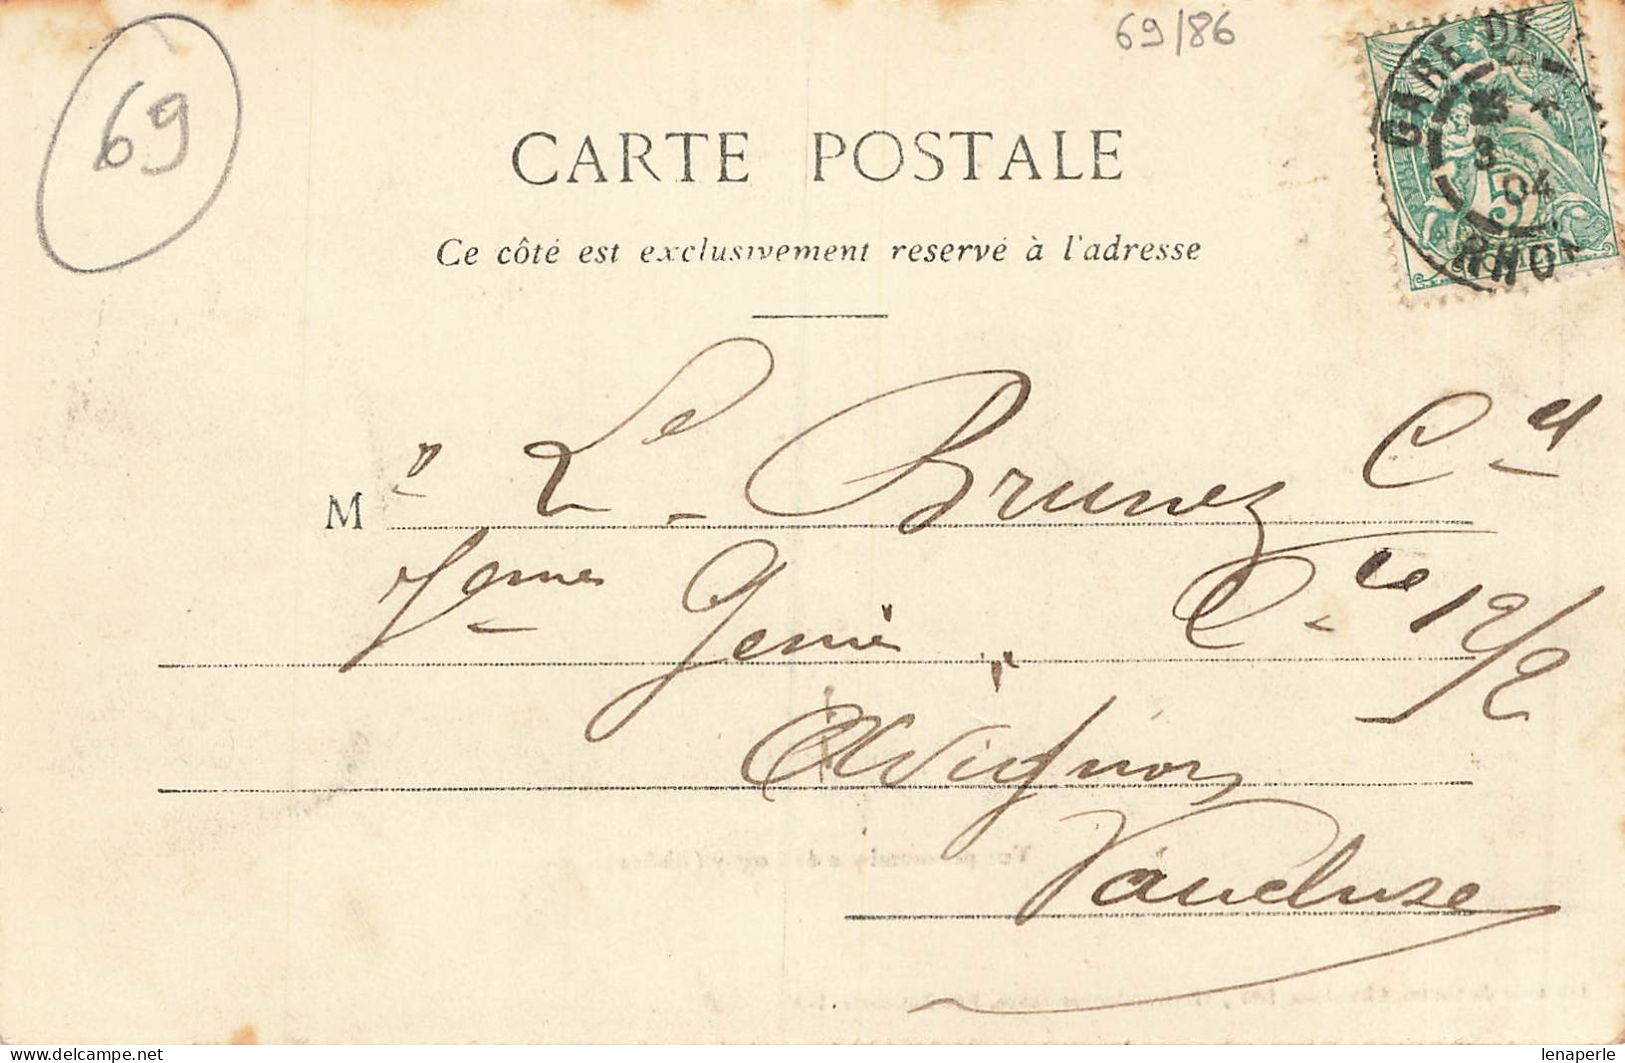 69
69/86
GARE DE
3
04
RHO
5
CARTE POSTALE
Ce côté est exclusivement reservé à l'adresse
M r Le Brunez Cal
7eme Genie Cie 12/2
Avignon
Vaucluse
lenaperle